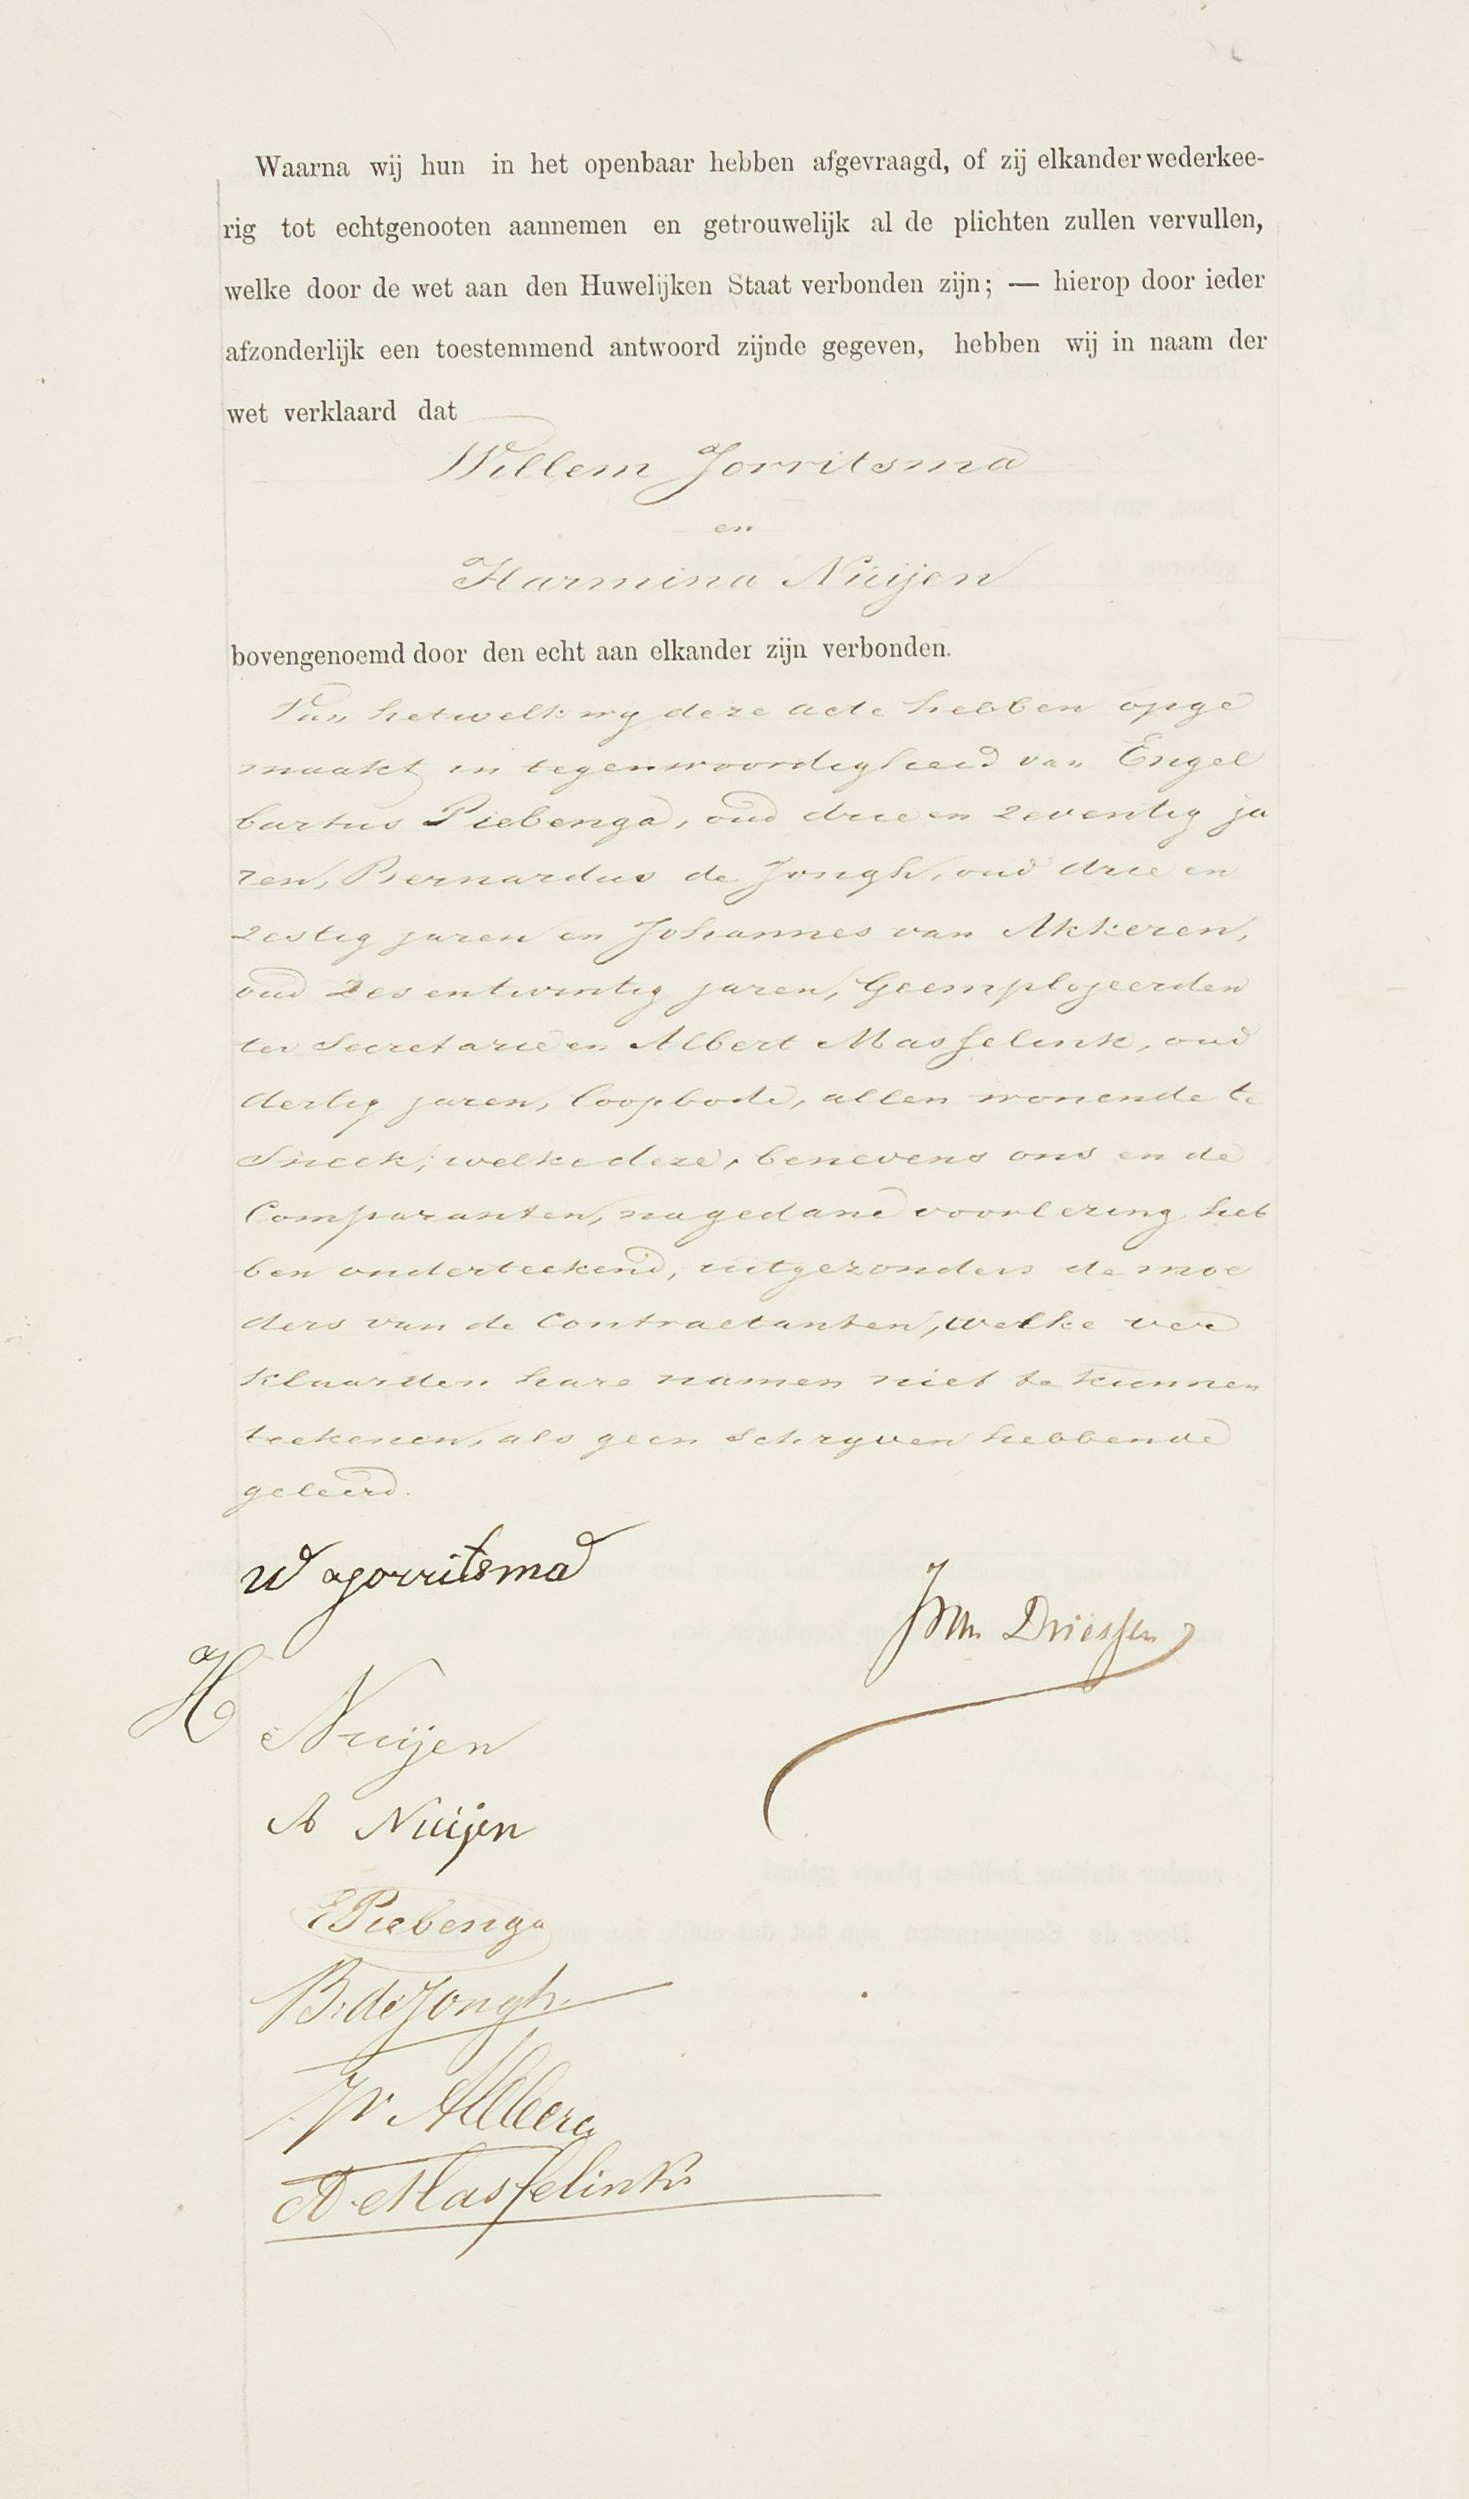 Waarna wij hun in het openbaar hebben afgevraagd, of zij elkander wederkee-
rig tot echtgenooten aannemen en getrouwelijk al de plichten zullen vervullen,
welke door de wet aan den Huwelijken Staat verbonden zijn; — hierop door ieder
afzonderlijk een toestemmend antwoord zijnde gegeven, hebben wij in naam der
wet verklaard dat
Willem Jorritsma
en
Harmina Nuijen
bovengenoemd door den echt aan elkander zijn verbonden.
Van hetwelk wy deze acte hebben opge
maakt in tegenwoordigheid van Engel
bartus Piebenga, oud drie en zeventig ja
ren, Bernardus de Jongh, oud drie en
zestig jaren en Johannes van Akkeren,
oud zes en twintig jaren, Geemployeerden
ter Secretarie en Albert Masselink, oud
dertig jaren, loopbode, allen wonende te
Sneek; welke deze, benevens ons en de
Comparanten, na gedane voorlezing heb
ben onderteekend, uitgezonderd de moe
ders van de Contractanten, welke ver
klaarden hare namen niet te kunnen
teekenen, als geen schryven hebbende
geleerd.
W Jorritsma
Driessen
H Nuijen
A Nuijen
E Piebenga
B. de Jongh.
A. Masselink